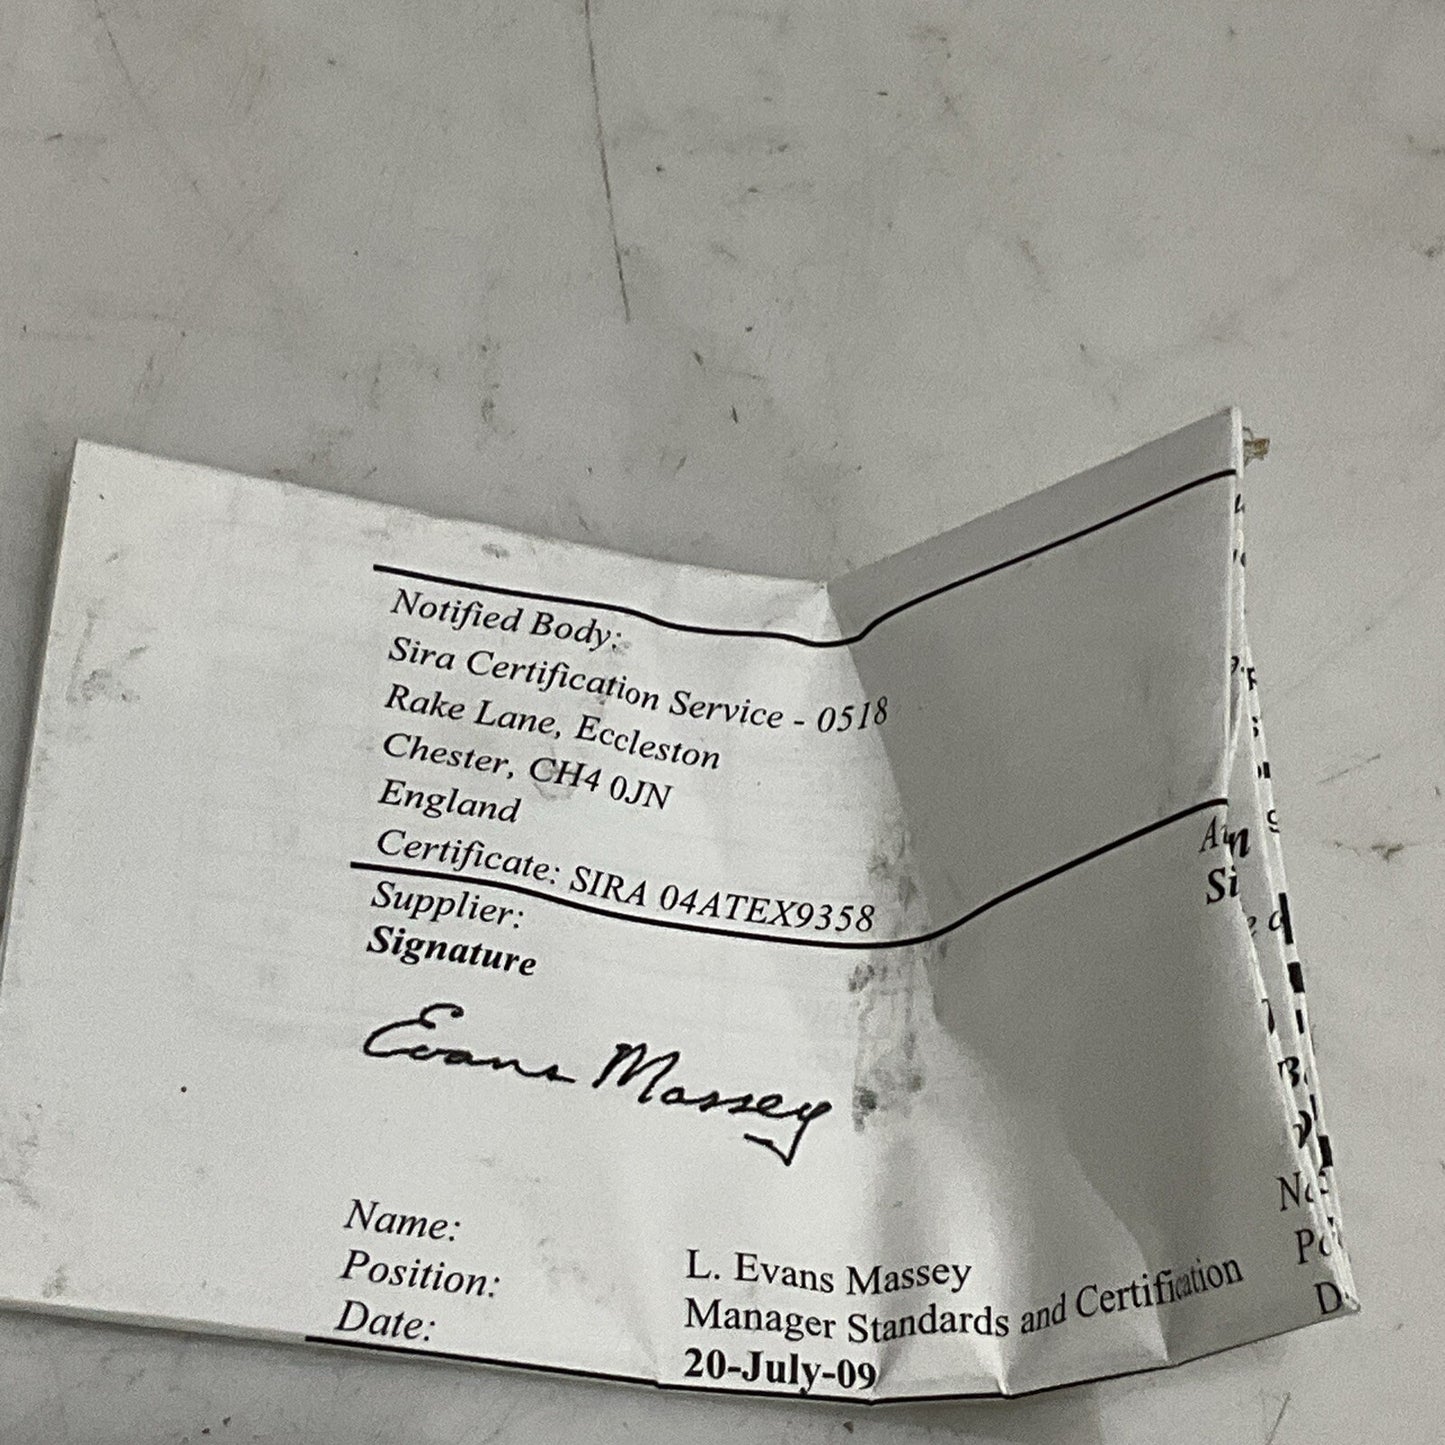 Notified Body:
Sira Certification Service - 0518
Rake Lane, Eccleston
Chester, CH4 0JN
England
Certificate: SIRA 04ATEX9358
Supplier:
Signature
Evans Massey
Name: L. Evans Massey
Position: Manager Standards and Certification
Date: 20-July-09